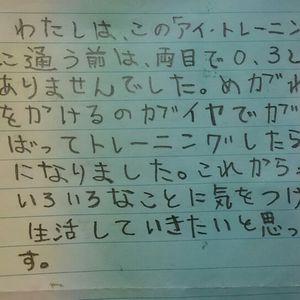 わたしは、この「アイ・トレーニン
に通う前は、両目で0.3し
ありませんでした。めがね
をかけるのがイヤでが
ばってトレーニングしたら
になりました。これから
いろいろなことに気をつけ
生活していきたいと思っ
す。